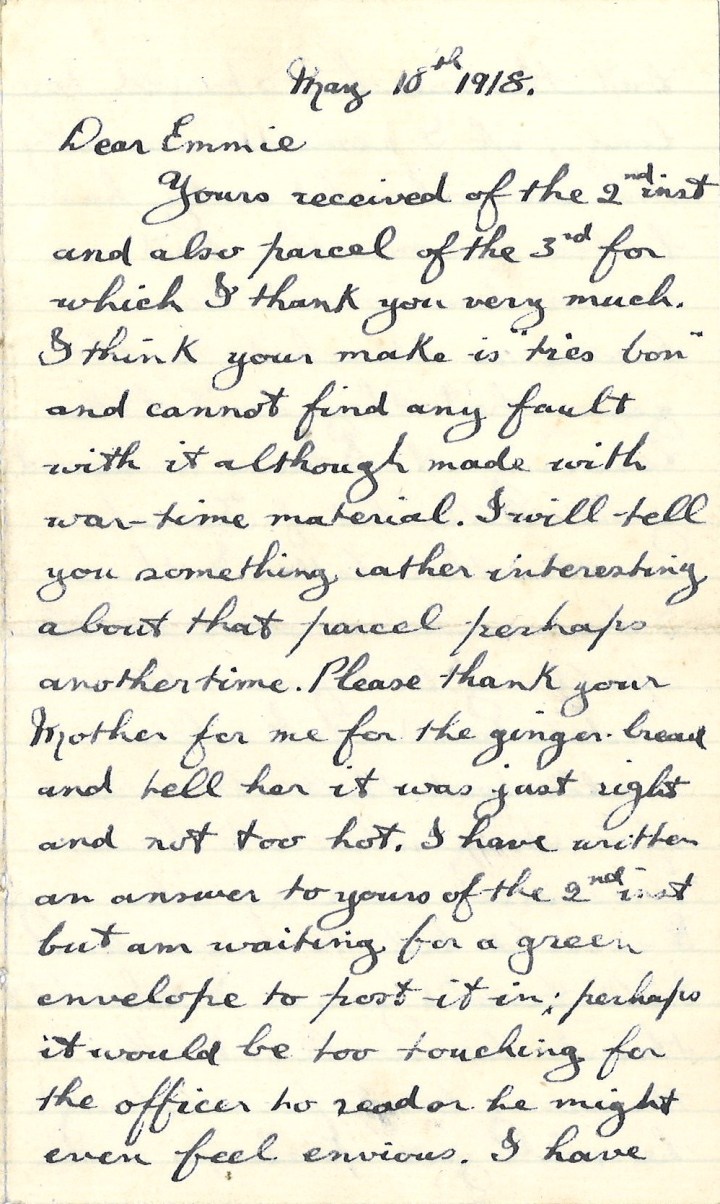 May 10th 1918.
Dear Emmie
Yours received of the 2nd inst
and also parcel of the 3rd for
which I thank you very much.
I think your make is "tres bon"
and cannot find any fault
with it although made with
war-time material. I will tell
you something rather interesting
about that parcel perhaps
another time. Please thank your
Mother for me for the ginger-bread
and tell her it was just right
and not too hot. I have written
an answer to yours of the 2nd inst
but am waiting for a green
envelope to post it in; perhaps
it would be too touching for
the officer to read or he might
even feel envious. I have